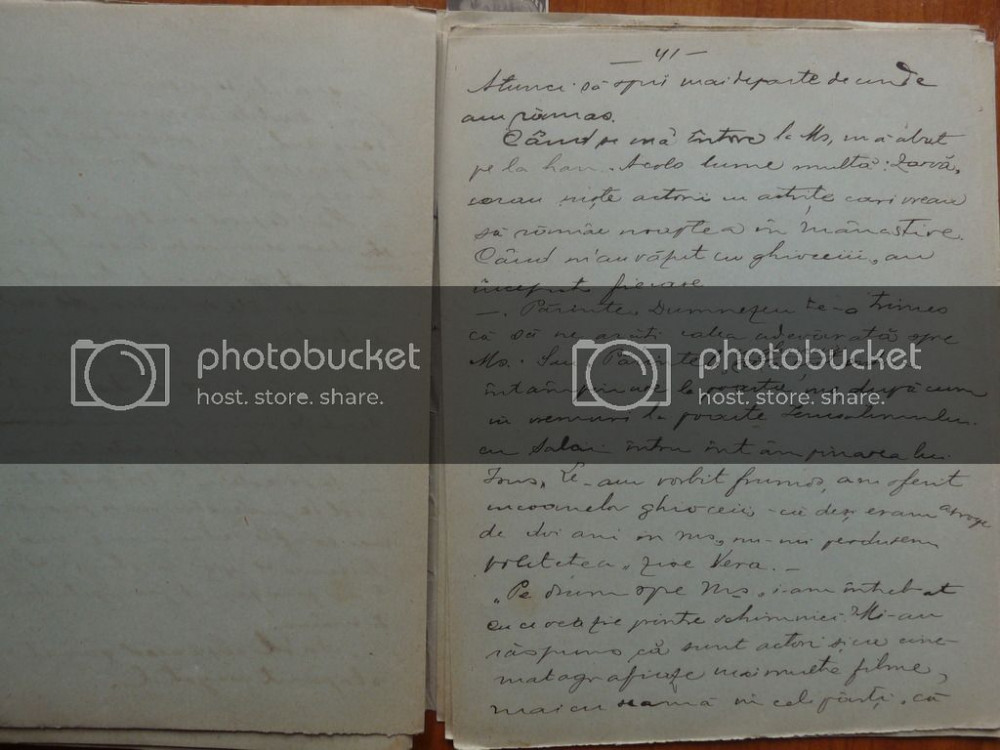 — 41 —
Atunci să spui mai departe de unde
am rămas.
Când să mă întorc la Ms, m'a abat
pe la han. Acolo lume multă: Zarvă,
erau niște actori cu actrițe cari vreau
să rămâe noaptea în Mânăstire.
Când m'au văzut cu ghioceii, au
început
—. Părinte, Dumnezeu te-a trimes
ca să ne arăți calea adevărată spre
Ms.
întâmpinare la poartă, nu după cum
în vremuri la poarta Ierusalimului.
întru întâmpinarea lui
Isus. Le-am vorbit frumos, am oferit
cucoanelor ghiocei, -că deși eram aproape
de doi ani în ms, nu-mi perdusem
politetea, zise Vera. —
„Pe drum spre Ms, i-am întrebat
cu ce ocazie printre schimnici? Mi-au
răspuns că sunt actori și cu cine-
matografiaze mai multe filme,
mai cu seamă în cel părți, că
photobucket
host. store. share.
photobucket
host. store. share.